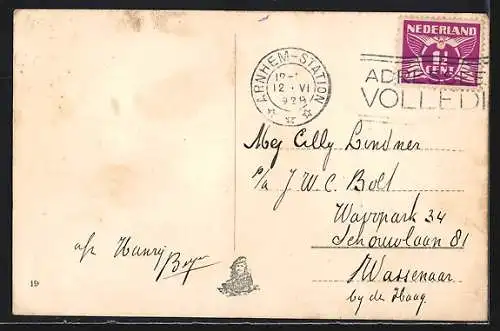 NEDERLAND
1½
CENT
ARNHEM-STATION
12 VI
1929
VOLLEDI
Mej Cilly Lindner
p/a J. W. C. Bolt
34
Schouwlaan 81
Wassenaar
by de Haag
afz Hanny
19